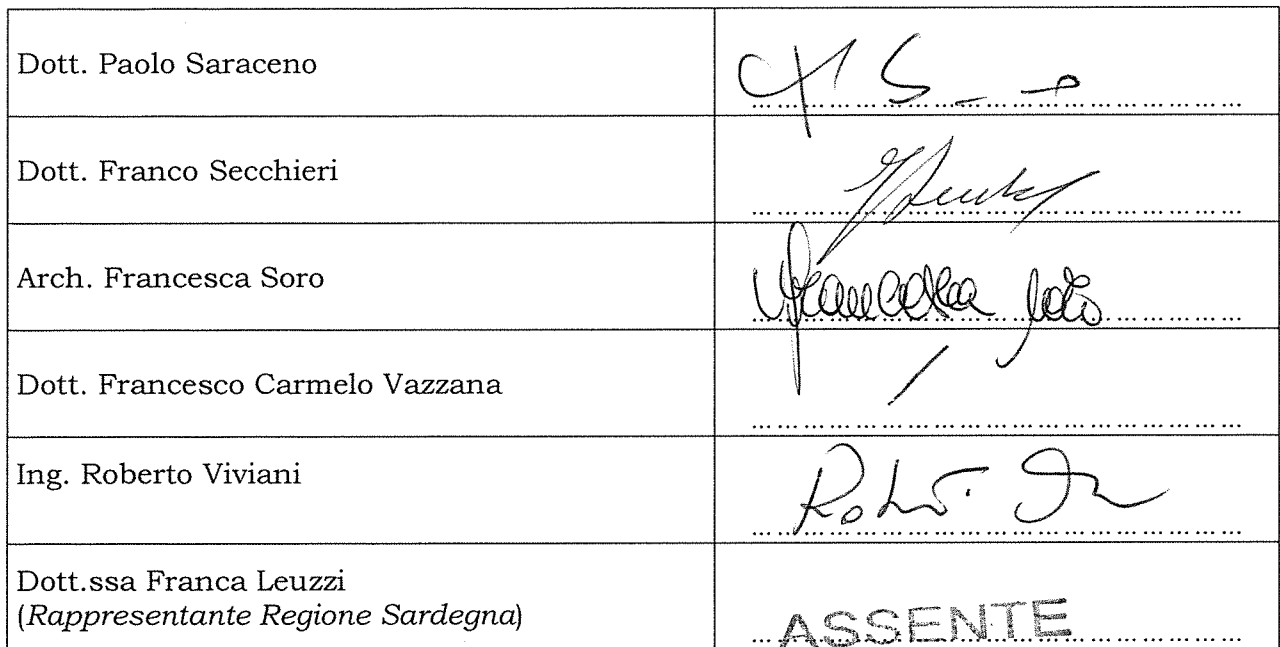 Dott. Paolo Saraceno
Dott. Franco Secchieri
Arch. Francesca Soro
Francesca Soro
Dott. Francesco Carmelo Vazzana
Ing. Roberto Viviani
Dott.ssa Franca Leuzzi
(Rappresentante Regione Sardegna)
ASSENTE